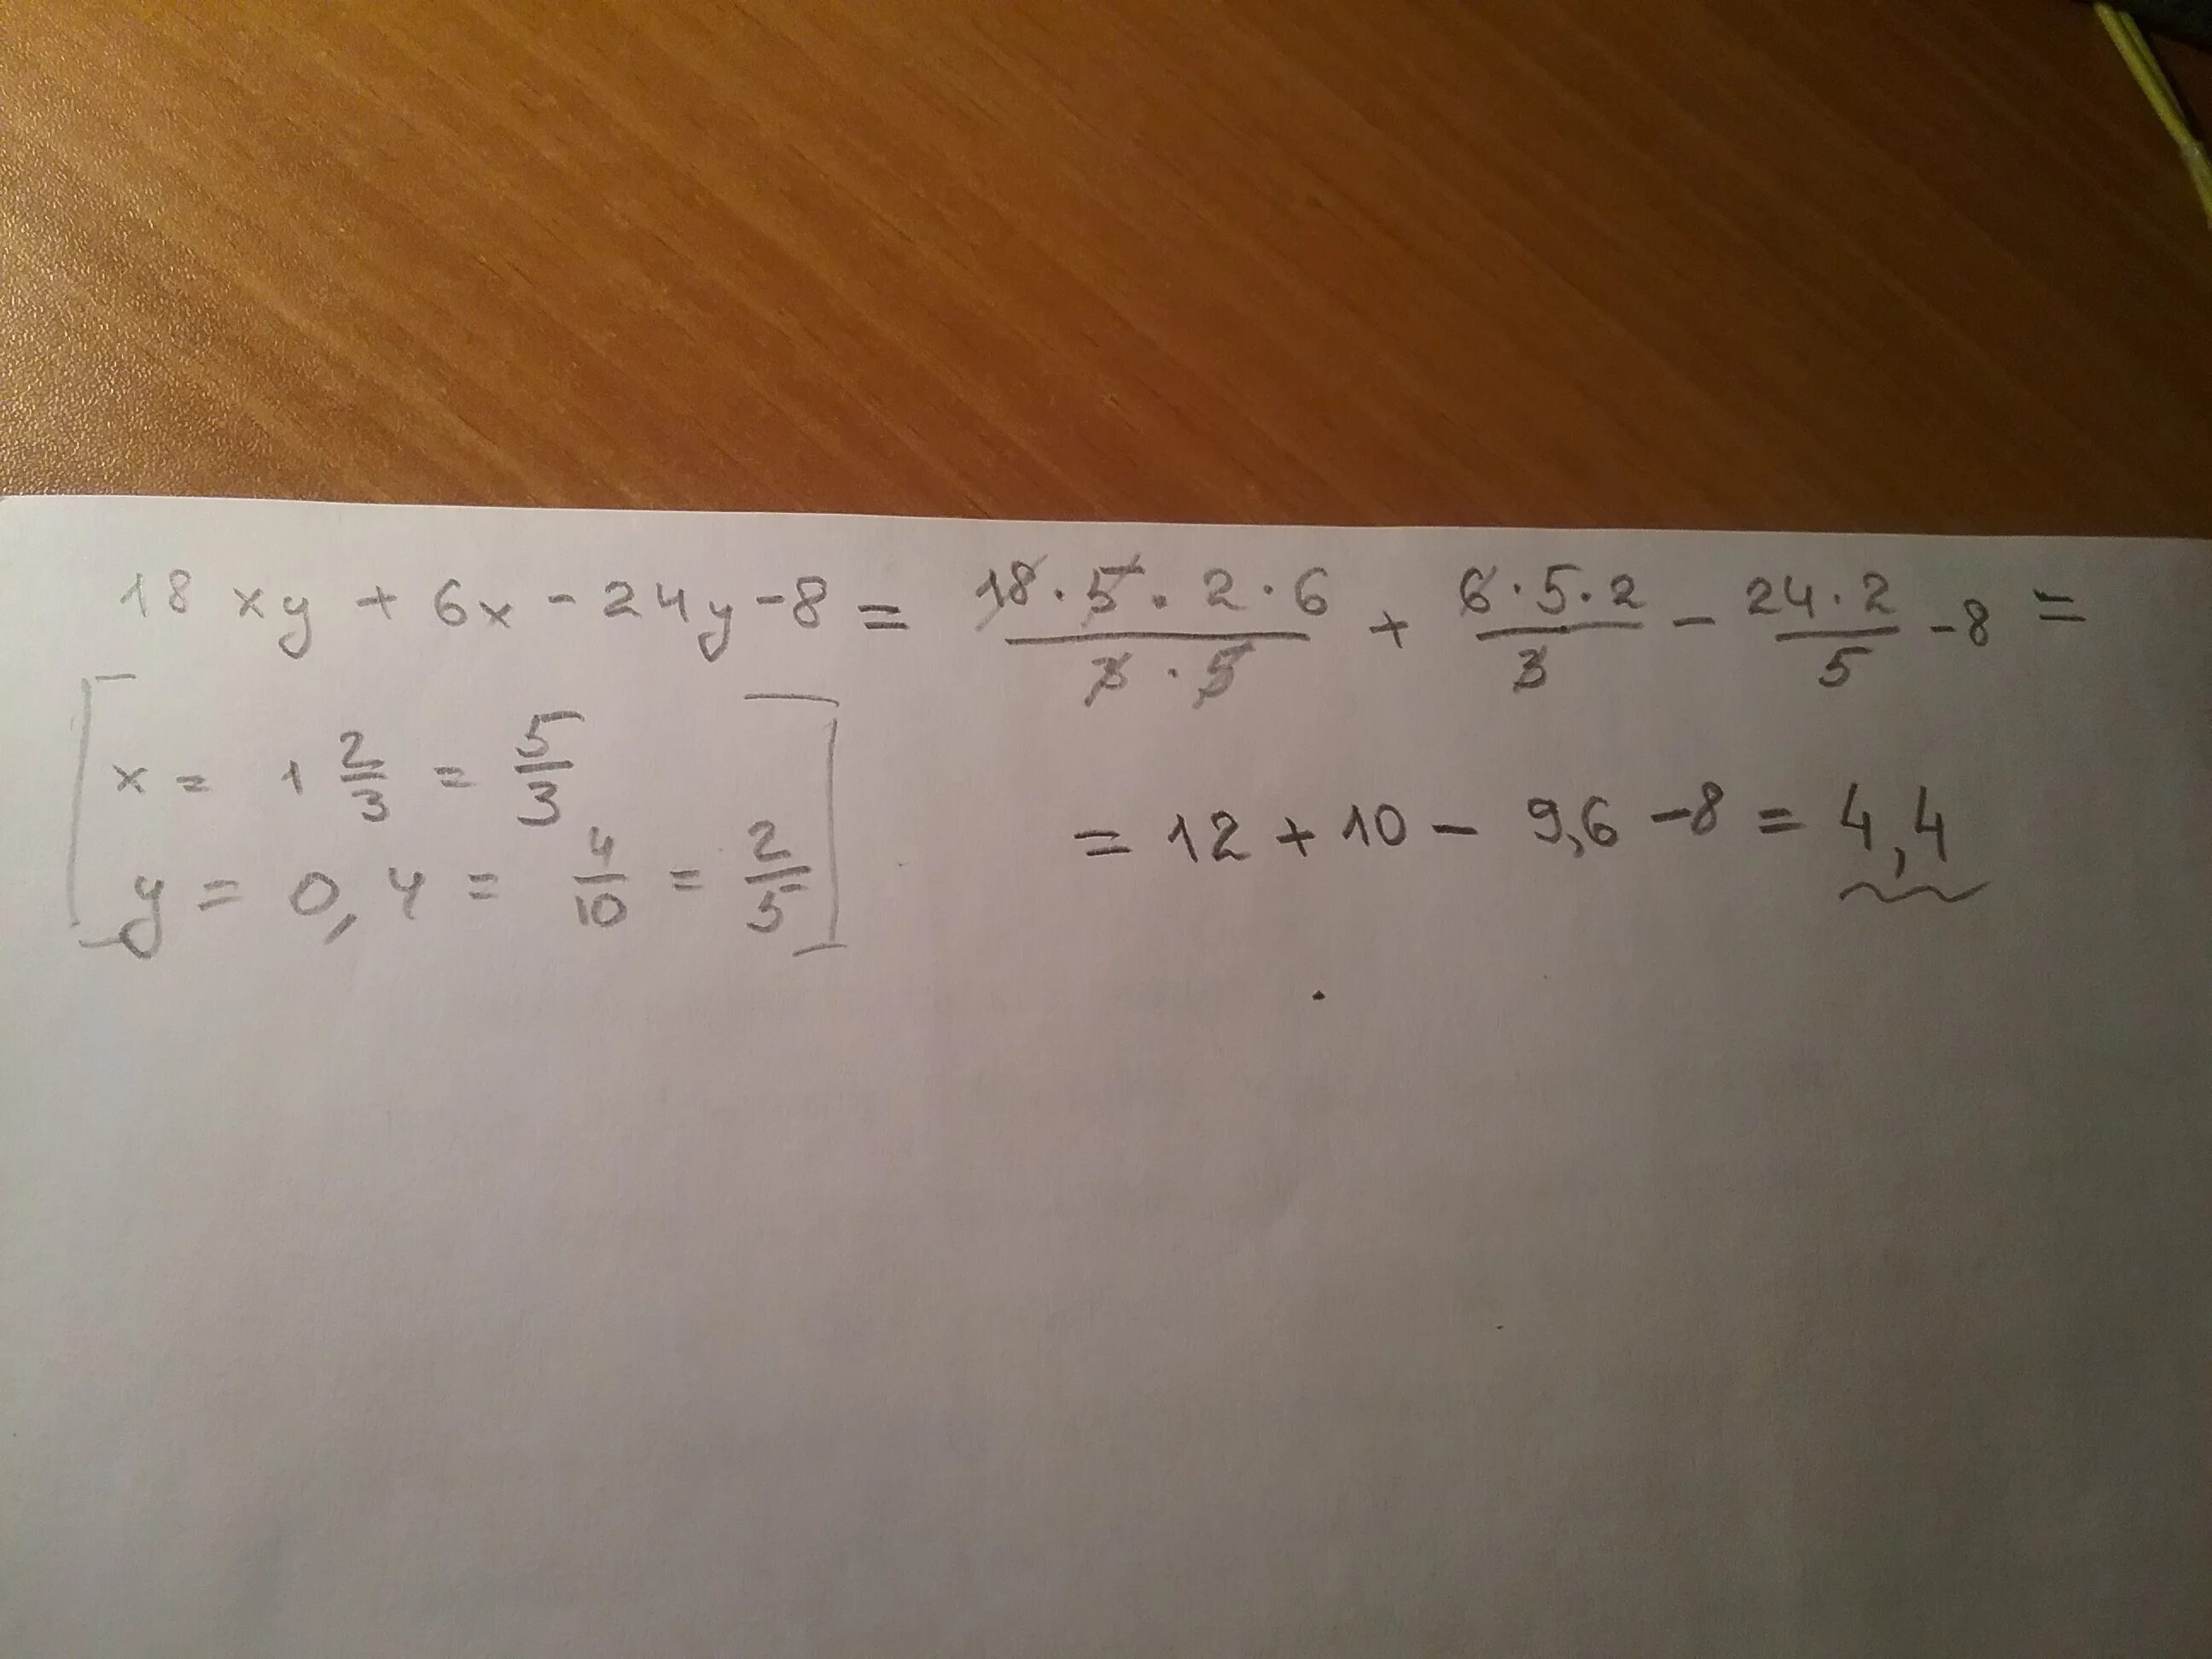 18xy + 6x - 24y - 8 = 18 · 5 · 2 · 6 / 3 · 5 + 6 · 5 · 2 / 3 - 24 · 2 / 5 - 8 =
x = 1 2/3 = 5/3
y = 0,4 = 4/10 = 2/5
= 12 + 10 - 9,6 - 8 = 4,4